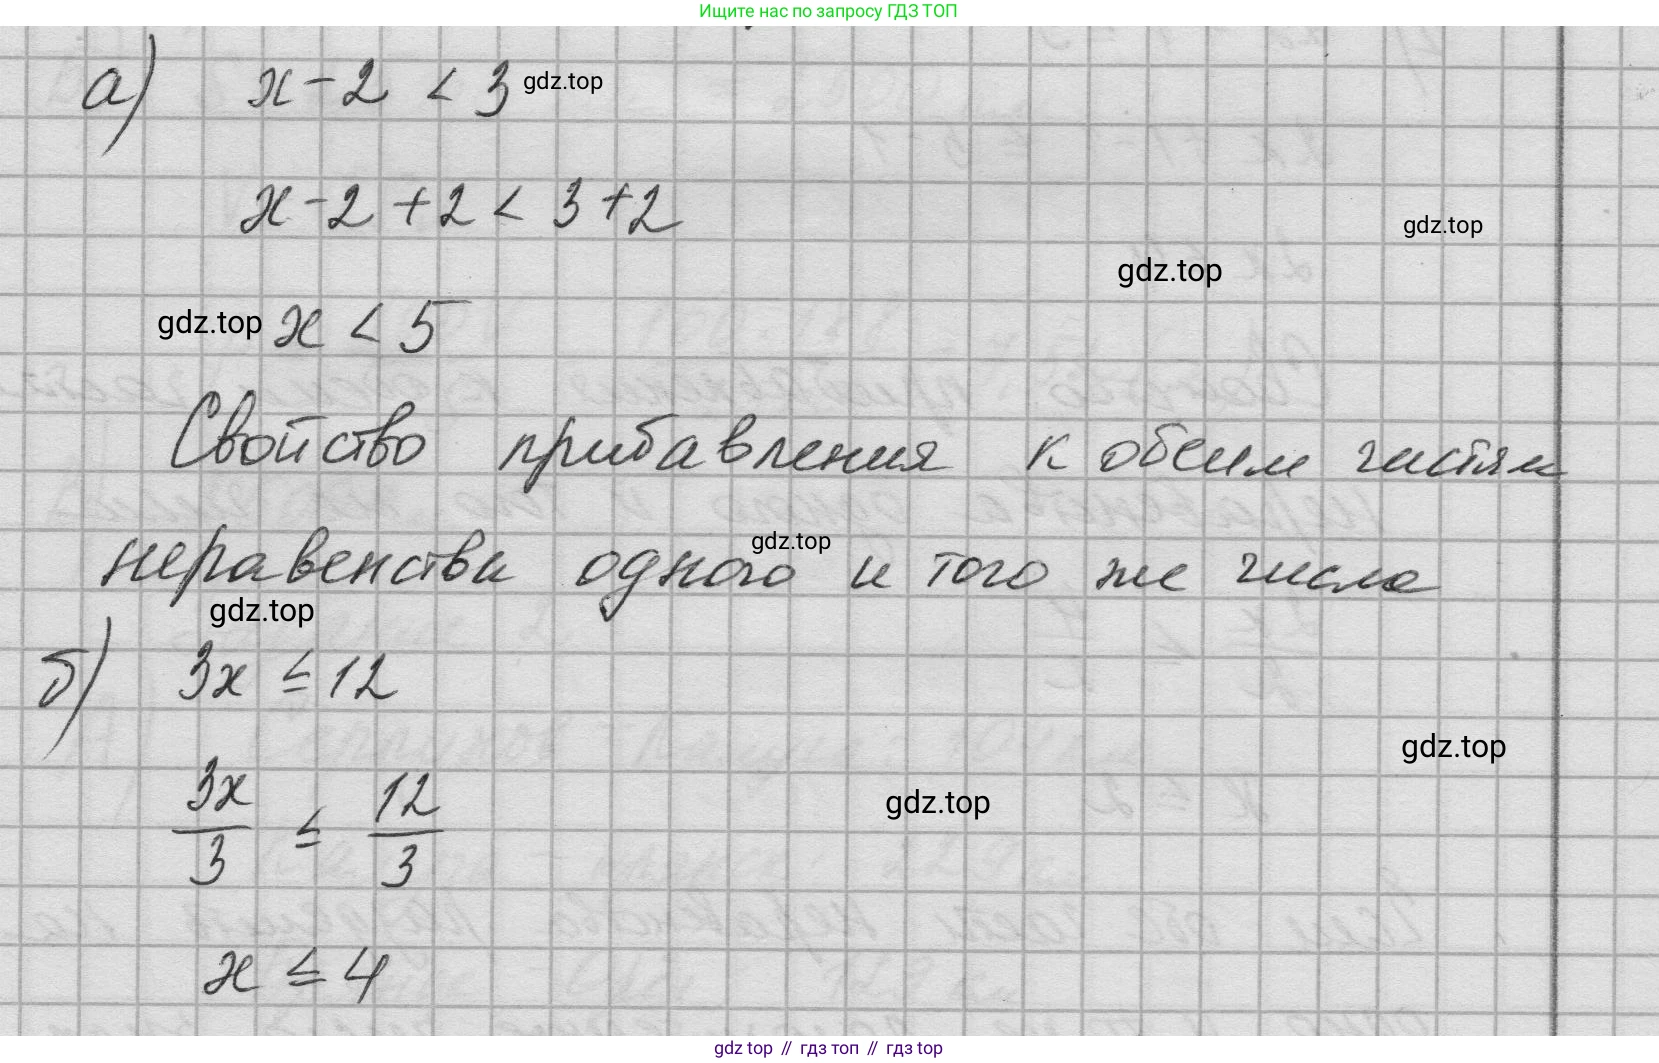 Ищите нас по запросу ГДЗ ТОП
а) x - 2 < 3 gdz.top
x - 2 + 2 < 3 + 2
gdz.top
gdz.top
gdz.top x < 5
Свойство прибавления к обеим частям
неравенства одного и того же числа
gdz.top
gdz.top
б) 3x ≤ 12
gdz.top
3x/3 ≤ 12/3
gdz.top
x ≤ 4
gdz top // гдз топ // гдз top